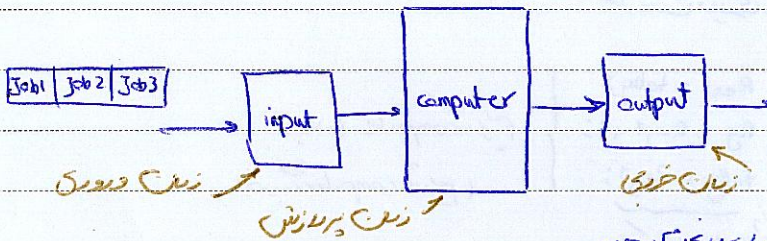 Job1 Job2 Job3
input
computer
output
زمان ورودی
زمان پردازش
زمان خروجی